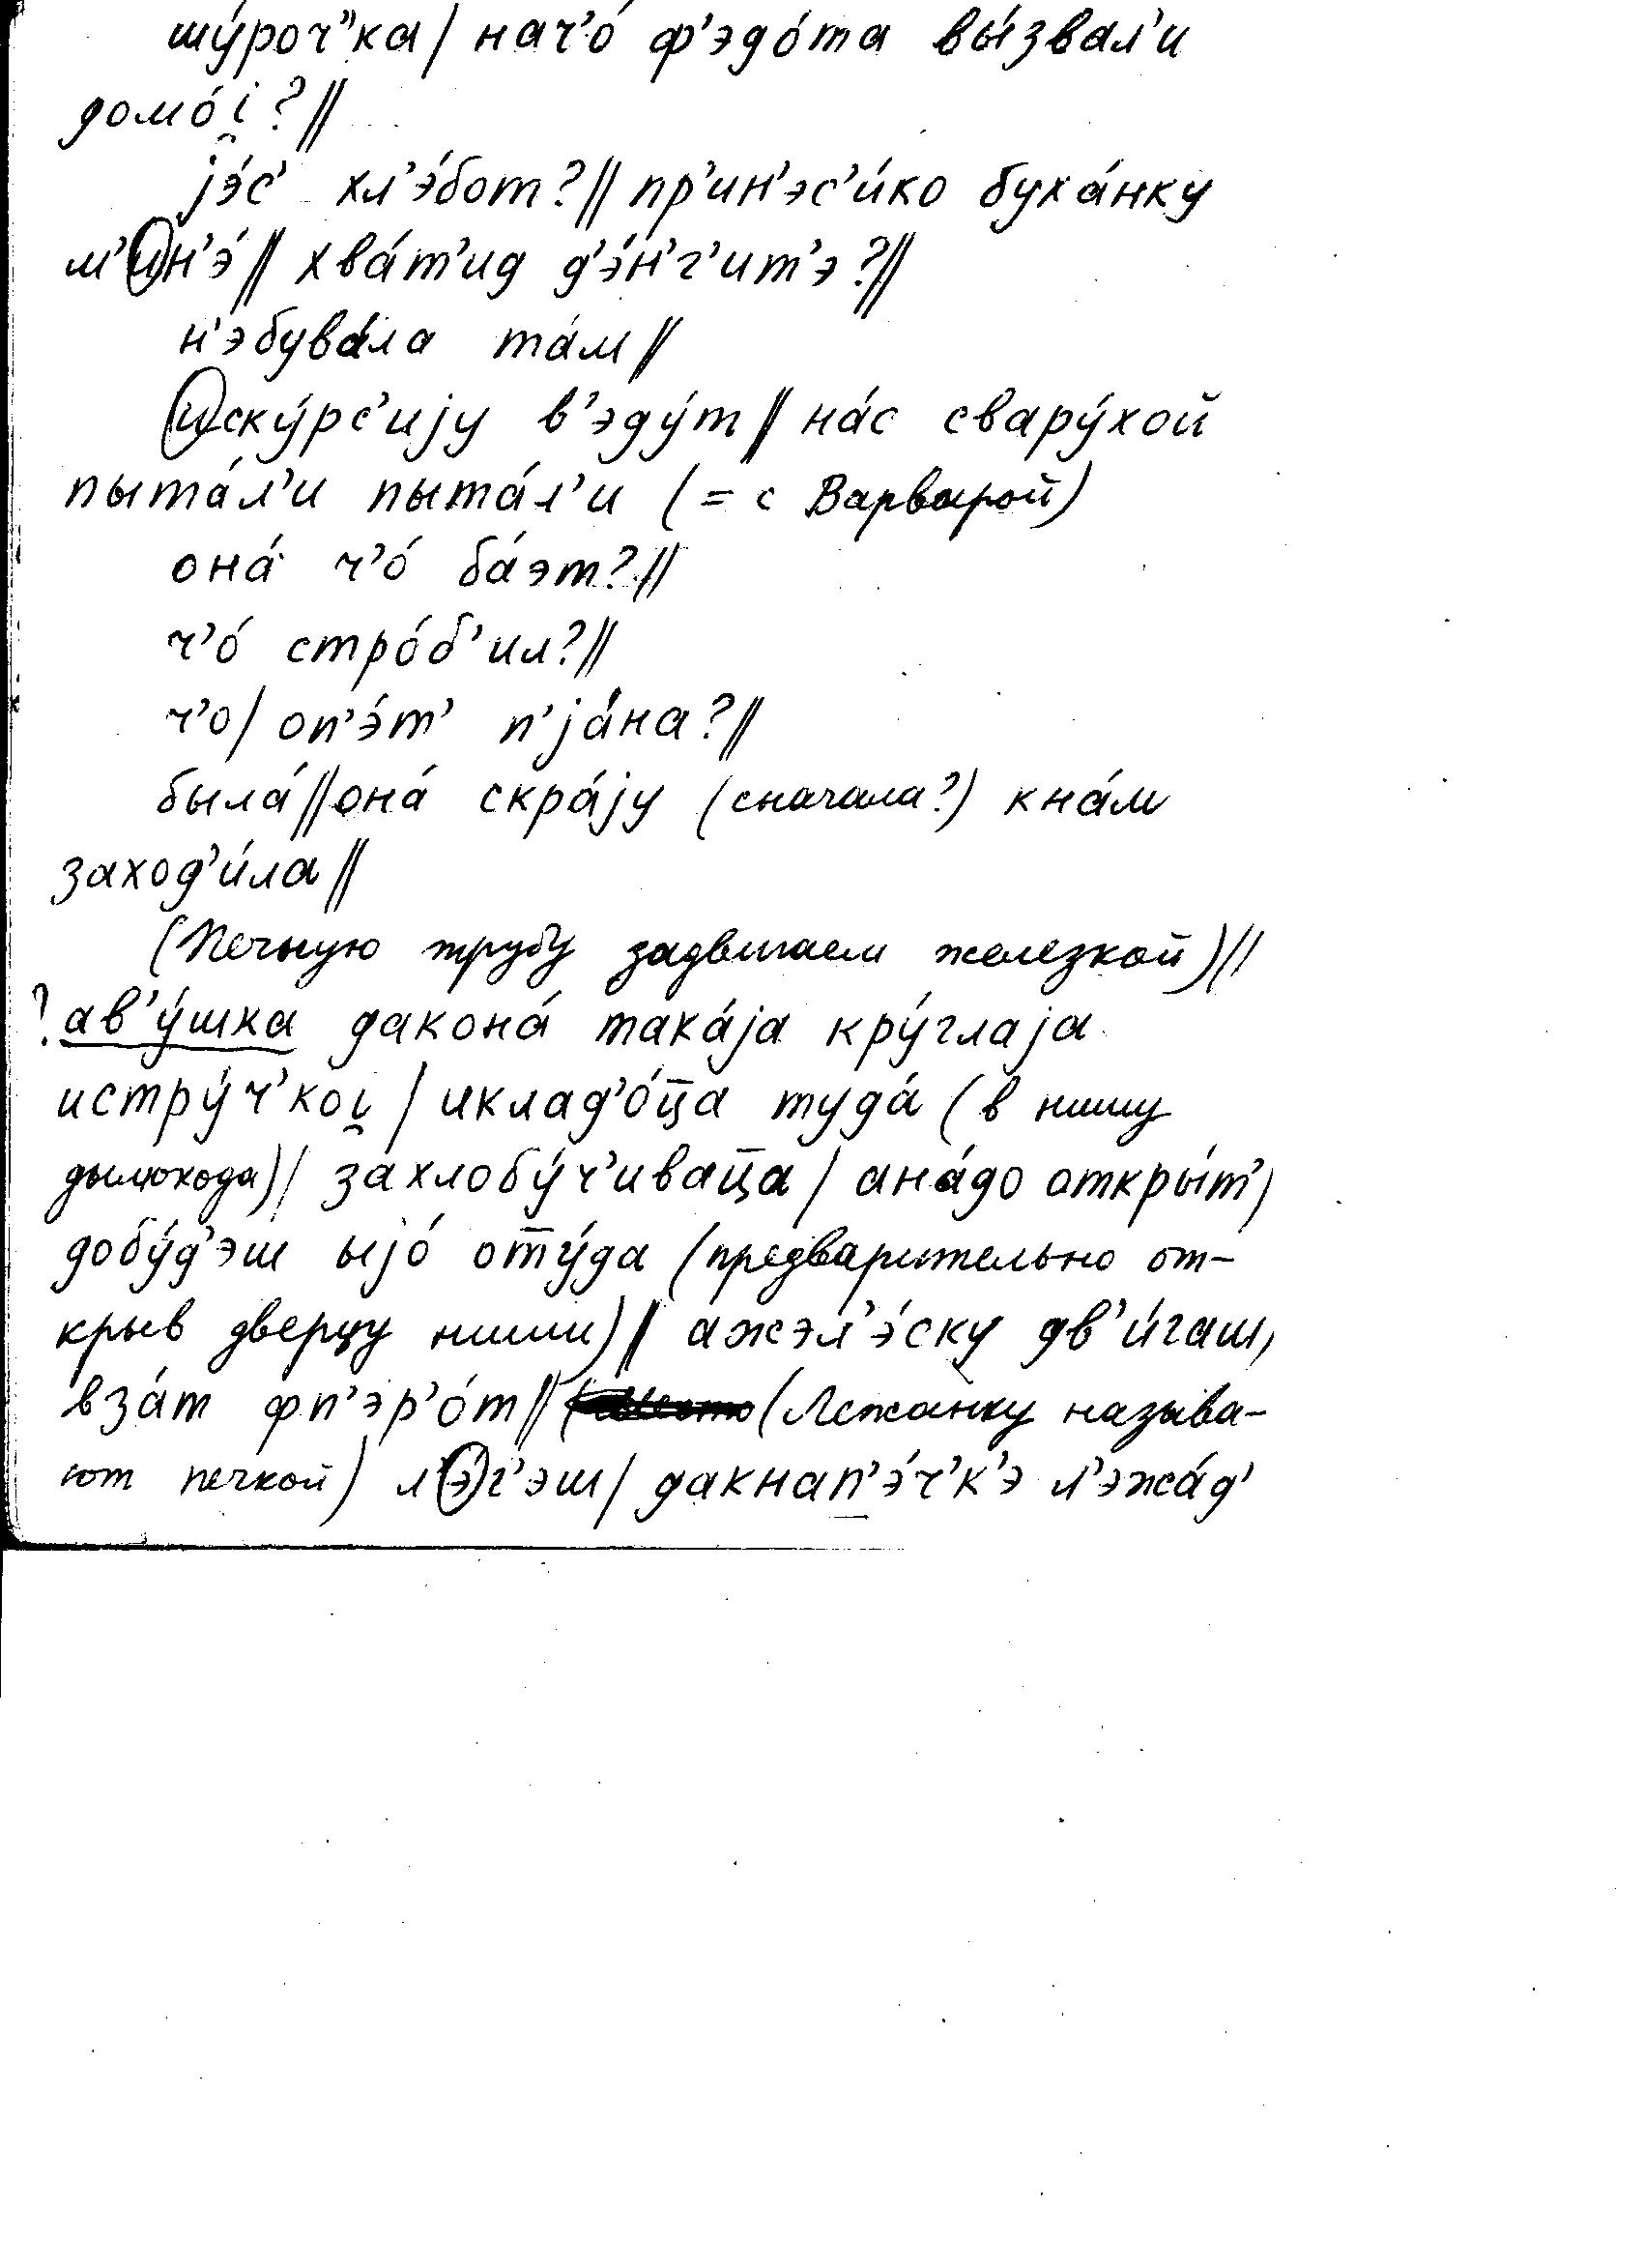 шу́роч"ка | нач’о́ ф’эдо́та вы́звал’и
домо́i̯ ? ||
jэ́с’ хл’э́бот? || пр’ин’эс’и́ко буха́нку
м’ин’э́ || хва́т’ид д’э́н’г’ит’э? ||
н’эбува́ла та́м ||
иску́рс’иjу в’эду́т || на́с свару́хой
пыта́л’и пыта́л’и (= с Варварой)
она́ ч’о́ ба́эт? ||
ч’о́ стро́б’ил? ||
ч’о | оп’э́т’ п’jа́на? ||
была́ || она́ скра́jу (сначала?) кна́м
заход’и́ла ||
(Печную трубу задвигаем железкой) ||
? ав’у́шка дакона́ така́jа кру́глаjа
истру́ч’коi̯ | иклад’о́ц̄а туда́ (в нишу
дымохода) | захлобу́ч’ивац̄а | ана́до откры́т’ |
добу́д’эш ыjо́ от̄у́да (предварительно от-
крыв дверцу ниши) || ажэл’э́ску дв’и́гаш,
вза́т фп’эр’о́т || (Лежанку называ-
ют печкой) л’э́г’эш | дакнап’э́ч’к’э л’эжа́д’